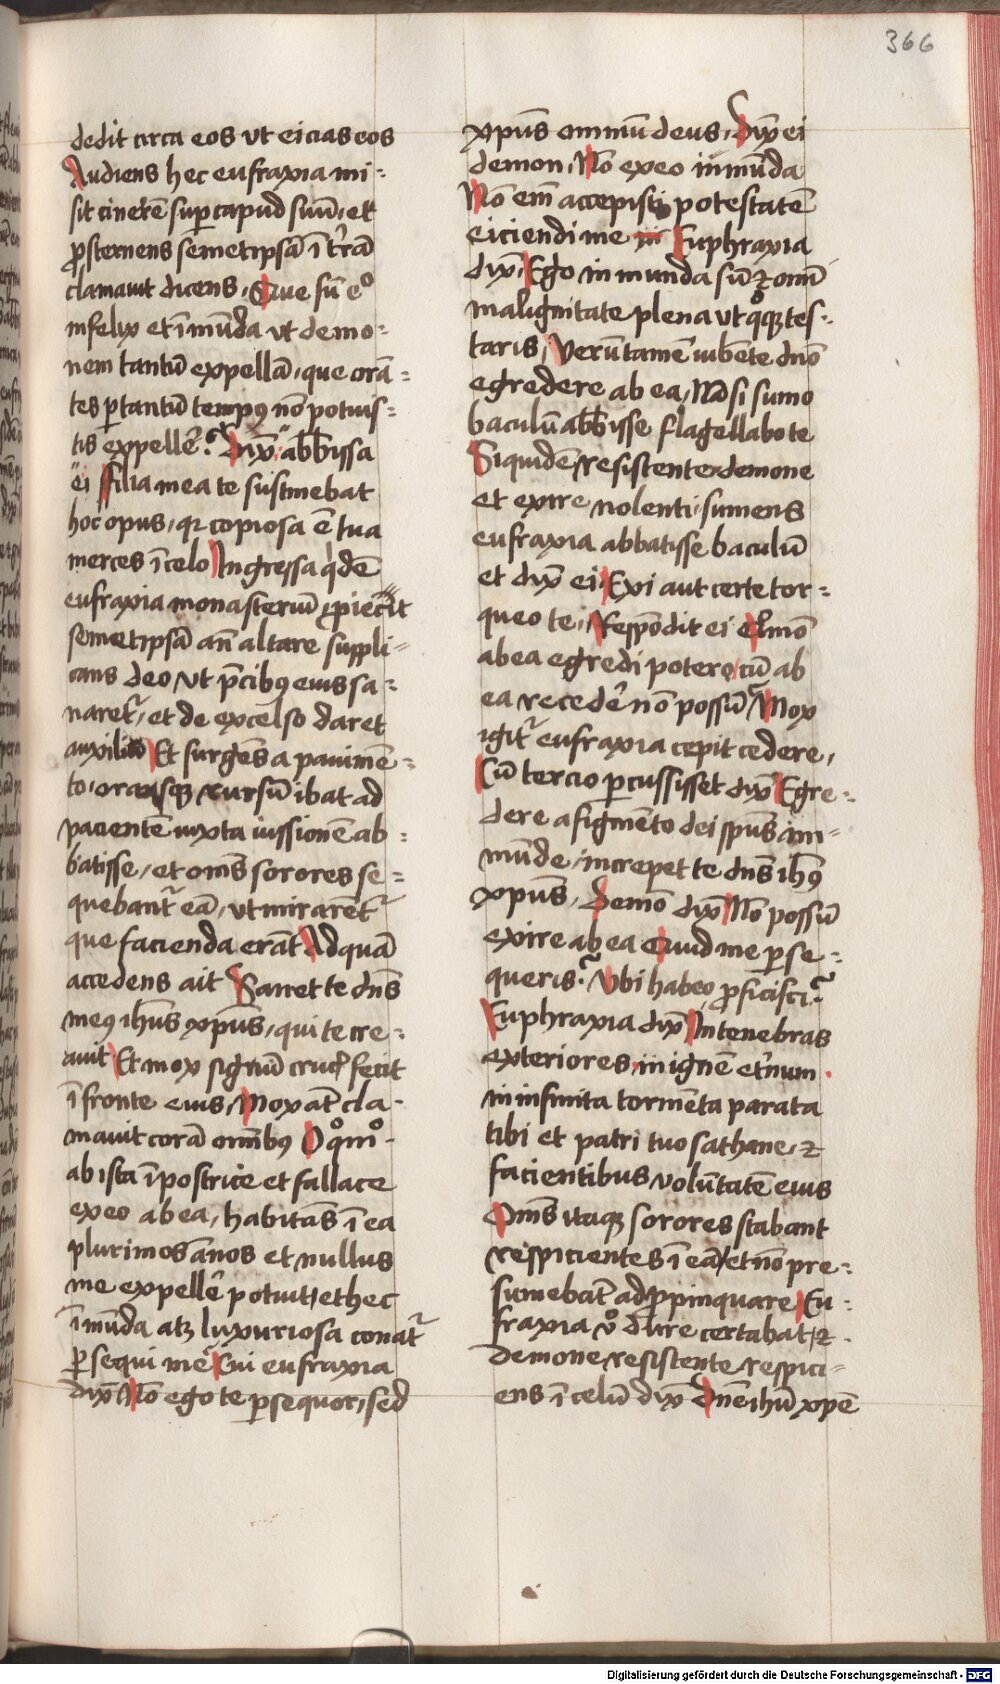 366
dedit circa eos vt eicias eos
Audiens hec eufraxia mi-
sit cinerē sup capud suū, et
ꝓsternens semetipsā ī t'rā
clamauit dicens, Que sū eº
infelix et īmūda vt demo-
nem tantū expellā, que orā-
tes ꝑ tantū tempꝰ nō potuis-
tis expellē? Dix̄ abb̄issa
ei Filia mea te sustinebat
hoc opus, qꝛ copiosa ē tua
merces ī celo Ingressa qͥdē
eufraxia monasteriū ꝓiecit
semetipsā an̄ altare suppli-
cans deo vt p̄cibꝰ eius sa-
naretᷣ, et de excelso daret
auxiliū Et surgēs a pauimē-
to, oransqꝫ rursū ibat ad
pacientē iuxta iussionē ab-
batisse, et om̄s sorores se-
quebantᷣ eā, vt mirarētᷣ
que facienda erāt Ad quā
accedens ait Sanet te dn̄s
meꝰ ih̄us xp̄us, qui te cre-
auit Et mox signū cruc̄ fecit
ī fronte eius, Mox at̄ cla-
mauit corā om̄ibꝰ Oº qͦmͦ
ab ista īpostrice et fallace
exeo ab ea, habitās ī ea
plurimos ānos et nullus
me expellē potuit, et hec
īmūda atqꝫ luxuriosa conatᷣ
ꝑsequi me Cui eufraxia
dix̄ Nō ego te ꝑsequor, sed
xp̄us omniū deus, Dix̄ ei
demon, Nō exeo inmūda
Nō em̄ accepisti potestatē
eiciendi me Euphraxia
dix̄, Ego inmunda sū ⁊ omī
malignitate plena vt qͦqꝫ tes-
taris, Verūtamē iubēte dn̄o
egredere ab ea, Nā si sumo
baculū abb̄isse flagellabo te
Siquidē resistente demone
et exire nolenti, sumens
eufraxia abbatisse baculū
et dix̄ ei Exi aut certe tor-
queo te, Respōdit ei
ab ea egredi potero, cū ab
ea recedē nō possū Mox
igitᷣ eufraxia cepit cedere,
Cū tercio ꝑcussisset dix̄ Egre-
dere a figmēto dei sp̄us im-
mūde, increpet te dn̄s ih̄ꝰ
xp̄us, Demō dix̄ Nō possū
exire ab ea Quid me ꝑse-
queris? Vbi habeo ꝓficisci?
Euphraxia dix̄ In tenebras
exteriores, in ignē et'num
in infinita tormēta parata
tibi et patri tuo sathane, ⁊
facientibus volūtatē eius
Om̄s itaqꝫ sorores stabant
respicientes ī eā, et nō pre-
sumebāt adꝓpinquare, Eu-
fraxia vͦ dure certabat, ⁊
demone resistente respici-
ens ī celū dix̄ Dn̄e ih̄u xp̄e
Digitalisierung gefördert durch die Deutsche Forschungsgemeinschaft - DFG